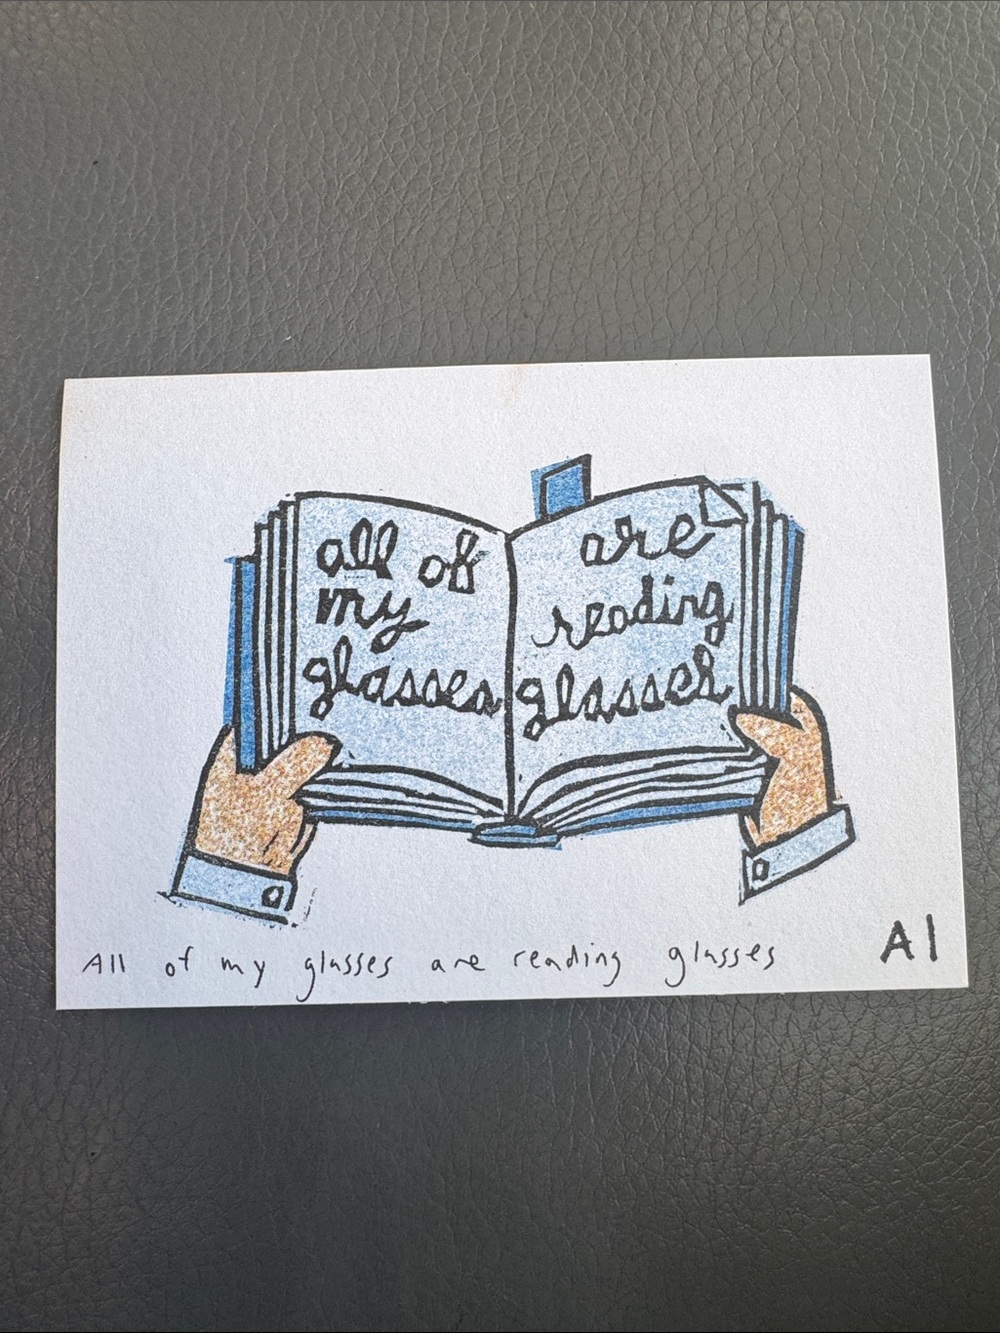 all of
my
glasses
are
reading
glasses
All of my glasses are reading glasses
Al